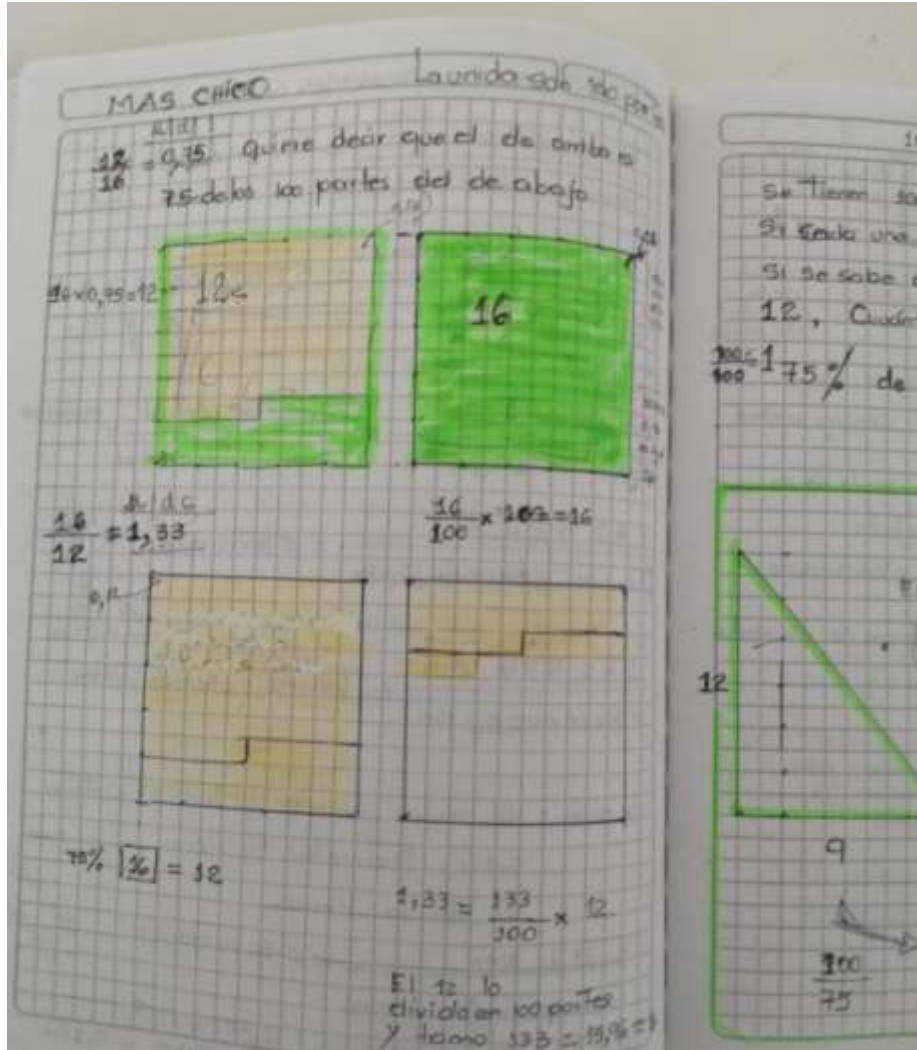 MAS CHICO
La unida son 100
12/16 = 0,75 Quiere decir que el de arriba es
75 de las 100 partes del de abajo
16x0,75=12
12
16
16/12 = 1,33
16/100 x 100=16
75% 16 = 12
1,33 = 133/100 x 12
El 12 lo
divido en 100 partes
y tomo 133 = 15,96 =
Se Tienen
Si cada una
Si se sabe
12,
100/100 = 1 75% de
12
9
100/75